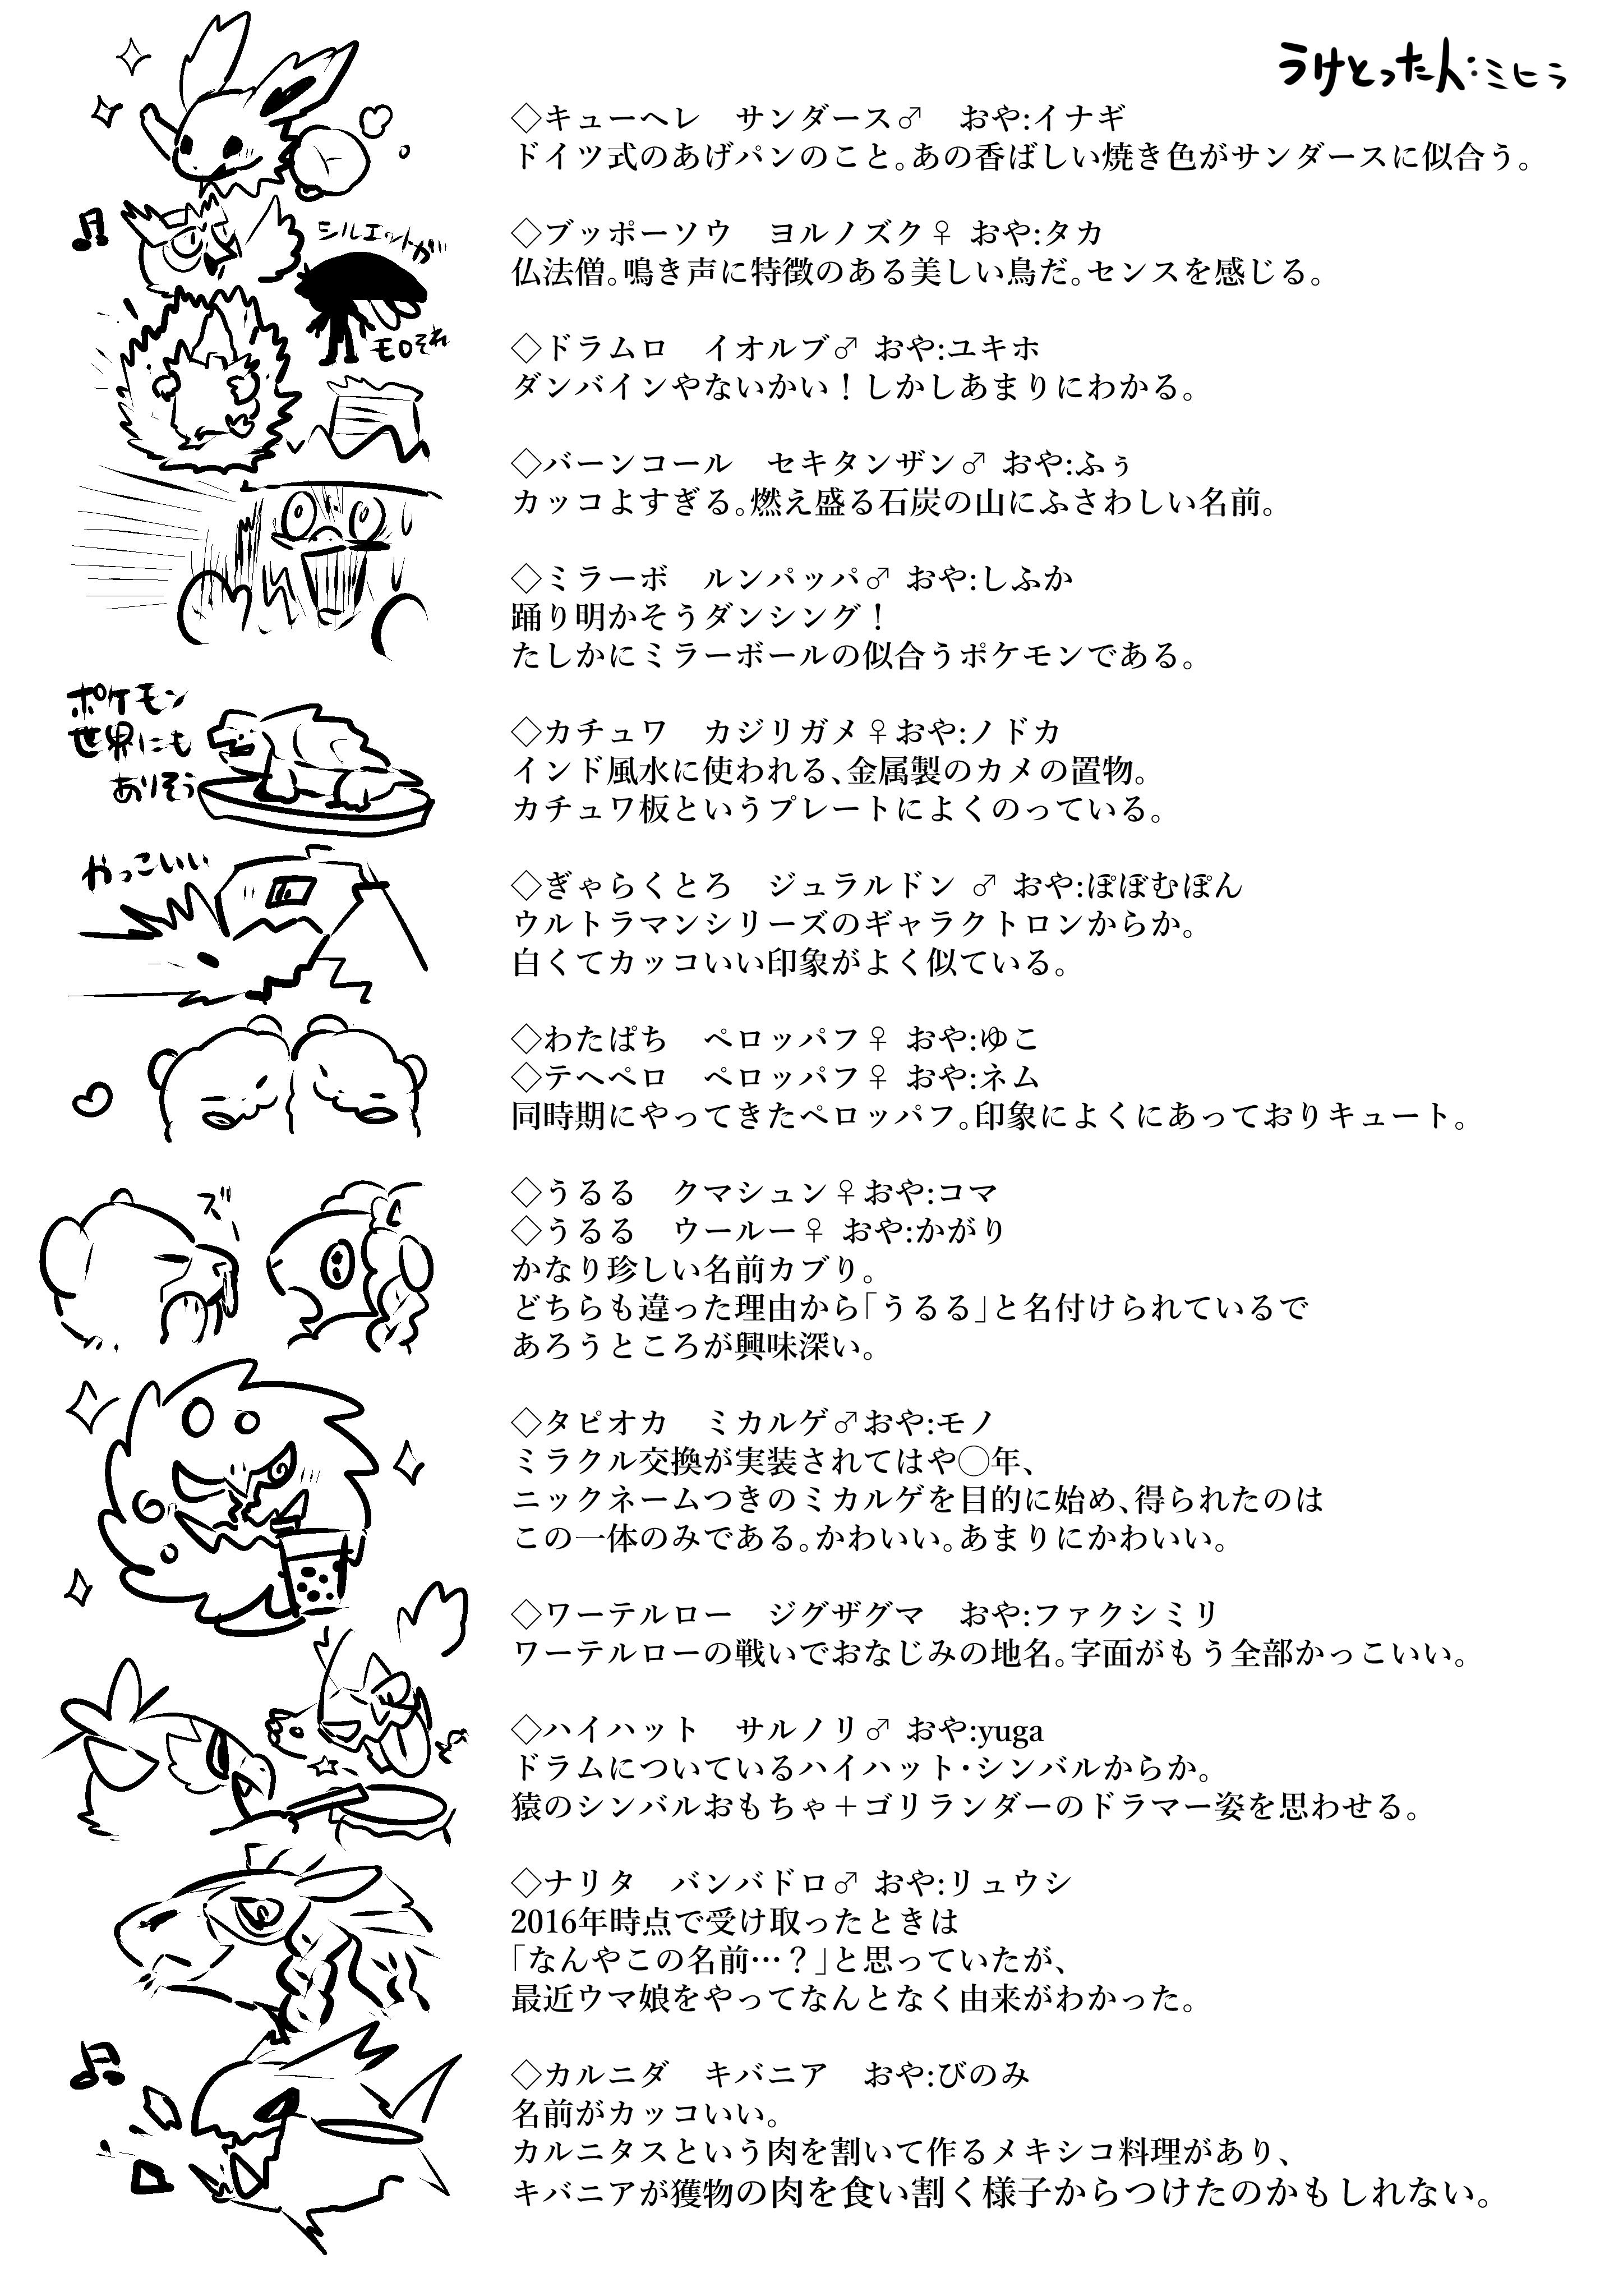 うけとったん:ミヒラ
◇キューヘレ　サンダース♂　おや:イナギ
ドイツ式のあげパンのこと。あの香ばしい焼き色がサンダースに似合う。
◇ブッポーソウ　ヨルノズク♀ おや:タカ
仏法僧。鳴き声に特徴のある美しい鳥だ。センスを感じる。
シルエットが
モロそれ
◇ドラムロ　イオルブ♂ おや:ユキホ
ダンバインやないかい！しかしあまりにわかる。
◇バーンコール　セキタンザン♂ おや:ふぅ
カッコよすぎる。燃え盛る石炭の山にふさわしい名前。
◇ミラーボ　ルンパッパ♂ おや:しふか
踊り明かそうダンシング！
たしかにミラーボールの似合うポケモンである。
ポケモン
世界にも
ありそう
◇カチュワ　カジリガメ♀おや:ノドカ
インド風水に使われる、金属製のカメの置物。
カチュワ板というプレートによくのっている。
かっこいい
◇ぎゃらくとろ　ジュラルドン ♂ おや:ぽぼむぽん
ウルトラマンシリーズのギャラクトロンからか。
白くてカッコいい印象がよく似ている。
◇わたぱち　ペロッパフ♀ おや:ゆこ
◇テヘペロ　ペロッパフ♀ おや:ネム
同時期にやってきたペロッパフ。印象によくにあっておりキュート。
ズ
◇うるる　クマシュン♀おや:コマ
◇うるる　ウールー♀ おや:かがり
かなり珍しい名前カブり。
どちらも違った理由から「うるる」と名付けられているで
あろうところが興味深い。
◇タピオカ　ミカルゲ♂おや:モノ
ミラクル交換が実装されてはや◯年、
ニックネームつきのミカルゲを目的に始め、得られたのは
この一体のみである。かわいい。あまりにかわいい。
◇ワーテルロー　ジグザグマ　おや:ファクシミリ
ワーテルローの戦いでおなじみの地名。字面がもう全部かっこいい。
◇ハイハット　サルノリ♂ おや:yuga
ドラムについているハイハット・シンバルからか。
猿のシンバルおもちゃ＋ゴリランダーのドラマー姿を思わせる。
◇ナリタ　バンバドロ♂ おや:リュウシ
2016年時点で受け取ったときは
「なんやこの名前…？」と思っていたが、
最近ウマ娘をやってなんとなく由来がわかった。
◇カルニダ　キバニア　おや:びのみ
名前がカッコいい。
カルニタスという肉を割いて作るメキシコ料理があり、
キバニアが獲物の肉を食い割く様子からつけたのかもしれない。